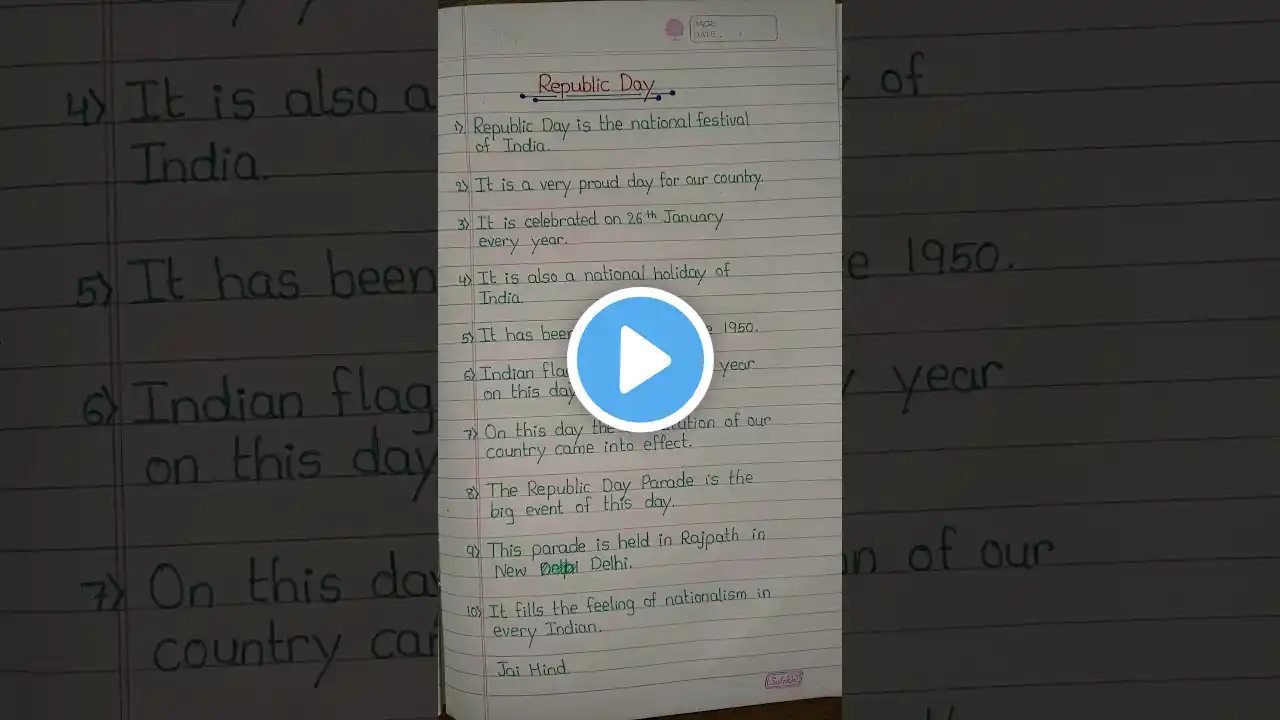 PAGE
DATE
Republic Day
1) Republic Day is the national festival
of India.
2) It is a very proud day for our country.
3) It is celebrated on 26th January
every year.
4) It is also a national holiday of
India.
5) It has been 1950.
6) Indian year
on this day
7) On this day the of our
country came into effect.
8) The Republic Day Parade is the
big event of this day.
9) This parade is held in Rajpath in
New Delhi.
10) It fills the feeling of nationalism in
every Indian.
Jai Hind
4) It is also a of
India.
5) It has been 1950.
6) Indian flag year
on this day
7) On this of our
country